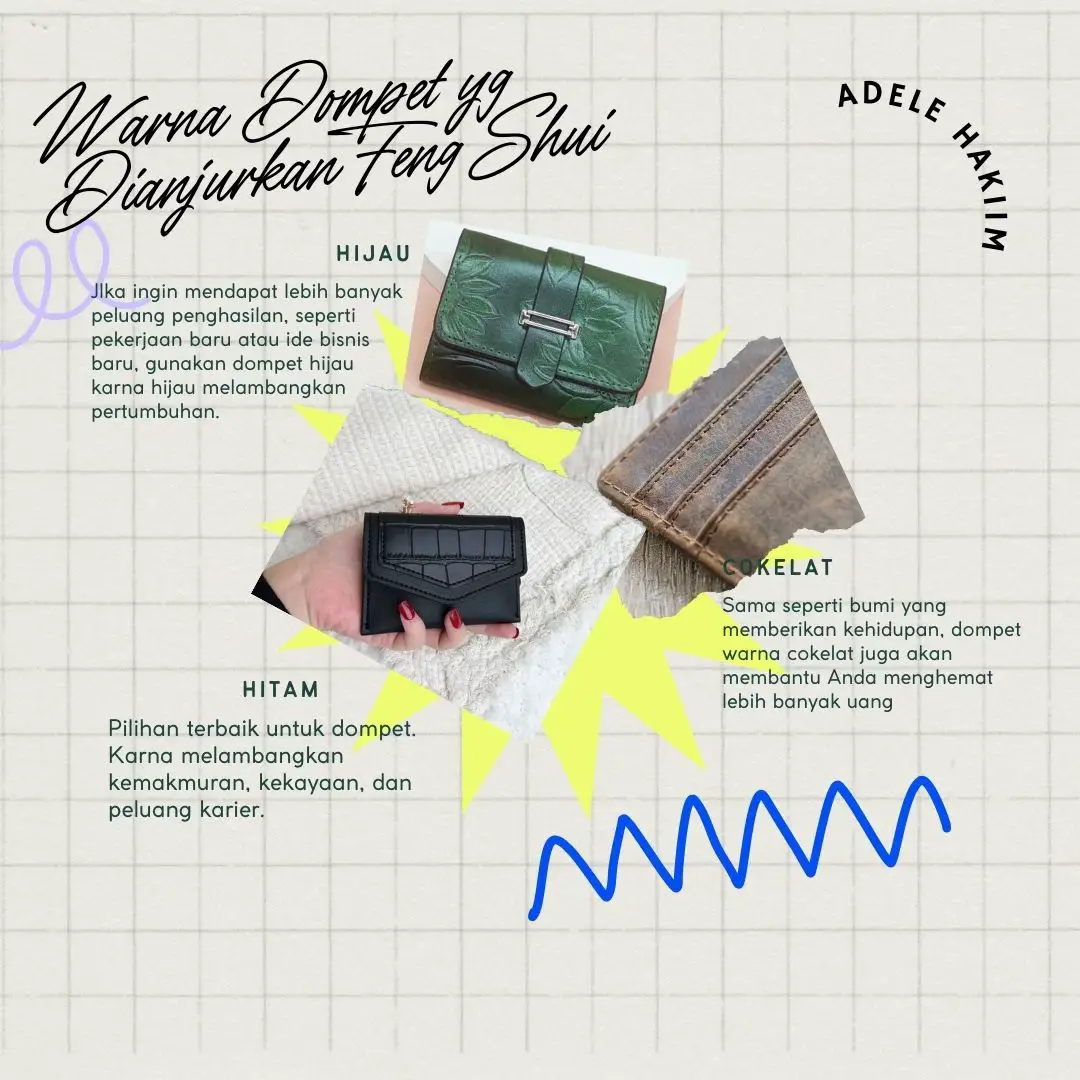 Warna Dompet yg
Dianjurkan Feng Shui
ADELE HAKIIM
HIJAU
JIka ingin mendapat lebih banyak
peluang penghasilan, seperti
pekerjaan baru atau ide bisnis
baru, gunakan dompet hijau
karna hijau melambangkan
pertumbuhan.
COKELAT
Sama seperti bumi yang
memberikan kehidupan, dompet
warna cokelat juga akan
membantu Anda menghemat
lebih banyak uang
HITAM
Pilihan terbaik untuk dompet.
Karna melambangkan
kemakmuran, kekayaan, dan
peluang karier.